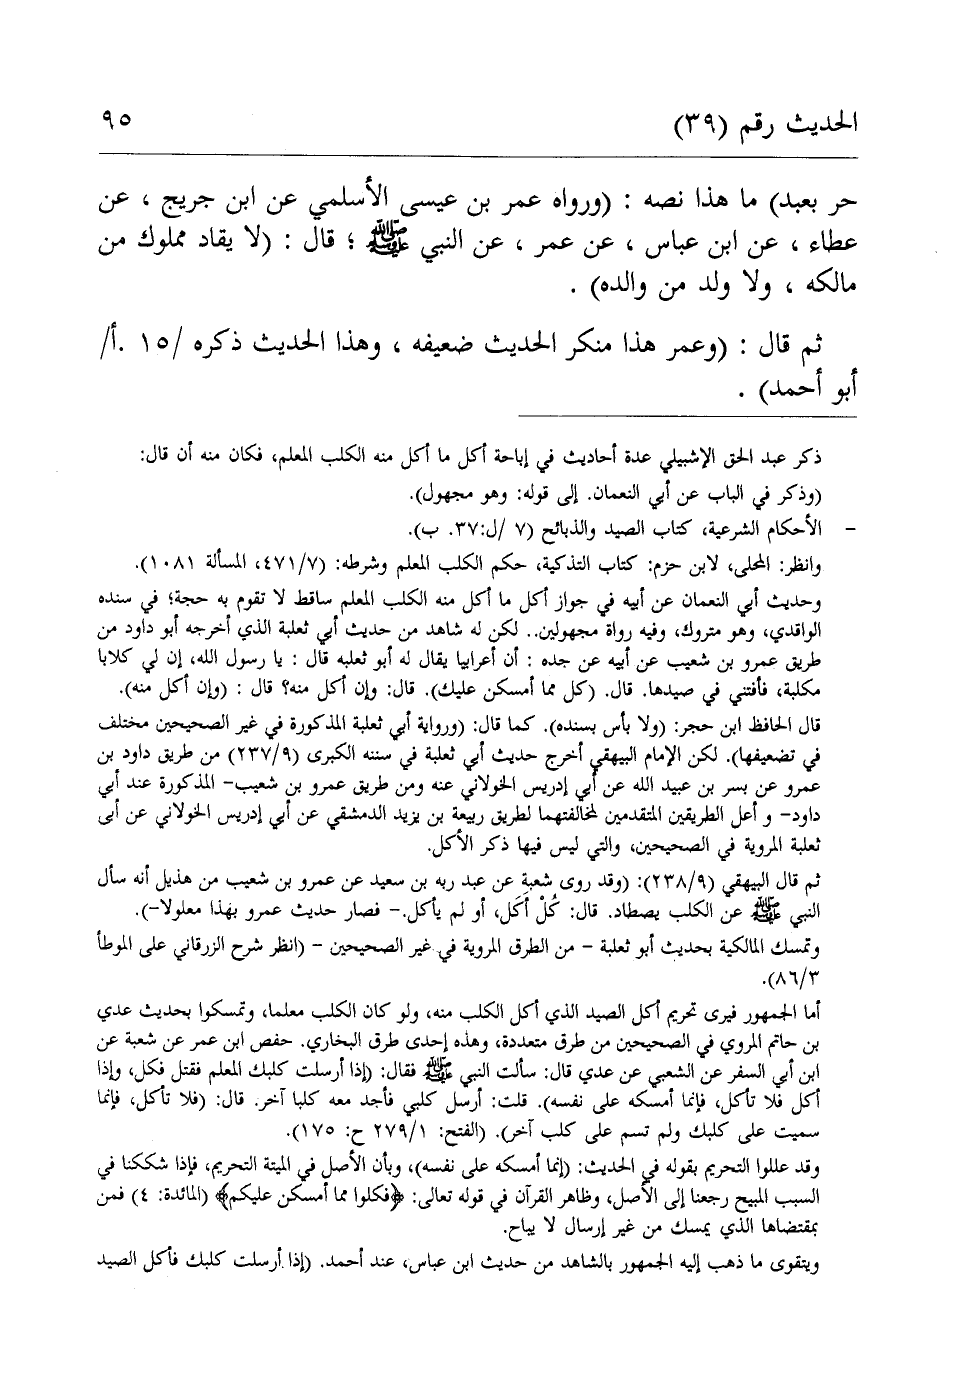 الحديث رقم (٣٩) ٩٥
حر بعبد) ما هذا نصه : (ورواه عمر بن عيسى الأسلمي عن ابن جريج ، عن
عطاء ، عن ابن عباس ، عن عمر ، عن النبي ﷺ ؛ قال : (لا يقاد مملوك من
مالكه ، ولا ولد من والده) .
ثم قال : (وعمر هذا منكر الحديث ضعيفه ، وهذا الحديث ذكره /١٥ .أ/
أبو أحمد) .
ذكر عبد الحق الإشبيلي عدة أحاديث في إباحة أكل ما أكل منه الكلب المعلم، فكان منه أن قال:
(وذكر في الباب عن أبي النعمان. إلى قوله: وهو مجهول).
– الأحكام الشرعية، كتاب الصيد والذبائح (٧ /ل:٣٧. ب).
وانظر: المحلى، لابن حزم: كتاب التذكية، حكم الكلب المعلم وشرطه: (٤٧١/٧، المسألة ١٠٨١).
وحديث أبي النعمان عن أبيه في جواز أكل ما أكل منه الكلب المعلم ساقط لا تقوم به حجة؛ في سنده
الواقدي، وهو متروك، وفيه رواة مجهولين.. لكن له شاهد من حديث أبي ثعلبة الذي أخرجه أبو داود من
طريق عمرو بن شعيب عن أبيه عن جده : أن أعرابيا يقال له أبو ثعلبه قال : يا رسول الله، إن لي كلابا
مكلبة، فأفتني في صيدها. قال. (كل مما أمسكن عليك). قال: وإن أكل منه؟ قال : (وإن أكل منه).
قال الحافظ ابن حجر: (ولا بأس بسنده). كما قال: (ورواية أبي ثعلبة المذكورة في غير الصحيحين مختلف
في تضعيفها). لكن الإمام البيهقي أخرج حديث أبي ثعلبة في سننه الكبرى (٢٣٧/٩) من طريق داود بن
عمرو عن بسر بن عبيد الله عن أبي إدريس الخولاني عنه ومن طريق عمرو بن شعيب– المذكورة عند أبي
داود– و أعل الطريقين المتقدمين لمخالفتهما لطريق ربيعة بن يزيد الدمشقي عن أبي إدريس الخولاني عن أبى
ثعلبة المروية في الصحيحين، والتي ليس فيها ذكر الأكل.
ثم قال البيهقي (٢٣٨/٩): (وقد روى شعبة عن عبد ربه بن سعيد عن عمرو بن شعيب من هذيل أنه سأل
النبي ﷺ عن الكلب يصطاد. قال: كُلْ أَكَل، أو لم يأكل.– فصار حديث عمرو بهذا معلولا–).
وتمسك المالكية بحديث أبو ثعلبة – من الطرق المروية في غير الصحيحين – (انظر شرح الزرقاني على الموطأ
٨٦/٣).
أما الجمهور فيرى تحريم أكل الصيد الذي أكل الكلب منه، ولو كان الكلب معلما، وتمسكوا بحديث عدي
بن حاتم المروي في الصحيحين من طرق متعددة، وهذه إحدى طرق البخاري. حفص ابن عمر عن شعبة عن
ابن أبي السفر عن الشعبي عن عدي قال: سألت النبي ﷺ فقال: (إذا أرسلت كلبك المعلم فقتل فكل، وإذا
أكل فلا تأكل، فإنما أمسكه على نفسه). قلت: أرسل كلبي فأجد معه كلبا آخر. قال: (فلا تأكل، فإنما
سميت على كلبك ولم تسم على كلب آخر). (الفتح: ٢٧٩/١ ح: ١٧٥).
وقد عللوا التحريم بقوله في الحديث: (إنما أمسكه على نفسه)، وبأن الأصل في الميتة التحريم، فإذا شككنا في
السبب المبيح رجعنا إلى الأصل، وظاهر القرآن في قوله تعالى: ﴿فكلوا مما أمسكن عليكم﴾ (المائدة: ٤) فمن
بمقتضاها الذي يمسك من غير إرسال لا يباح.
ويتقوى ما ذهب إليه الجمهور بالشاهد من حديث ابن عباس، عند أحمد. (إذا أرسلت كلبك فأكل الصيد